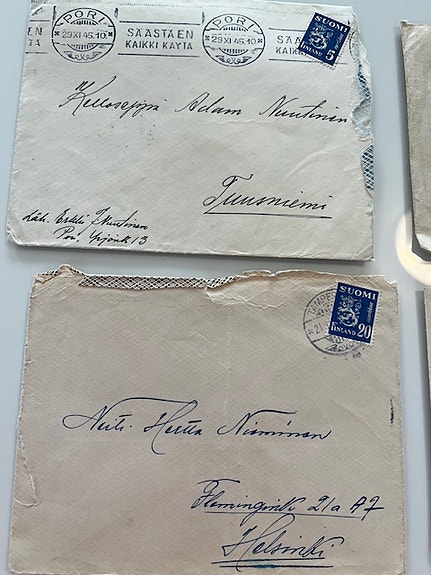 EN
TA
PORI
29.XI.45.10
SÄÄSTÄEN
KAIKKI KÄYTÄ
PORI
29.XI.45.10
SÄÄ
KAIK
SUOMI
FINLAND
5
Kelloseppä Adam Nuutinen
Tuusniemi
Läh. Erkki Nuutinen
Pori, 13
SUOMI
FINLAND
20
TAMPE
Neiti Hertta Nieminen
Flemingink 21a A7
Helsinki